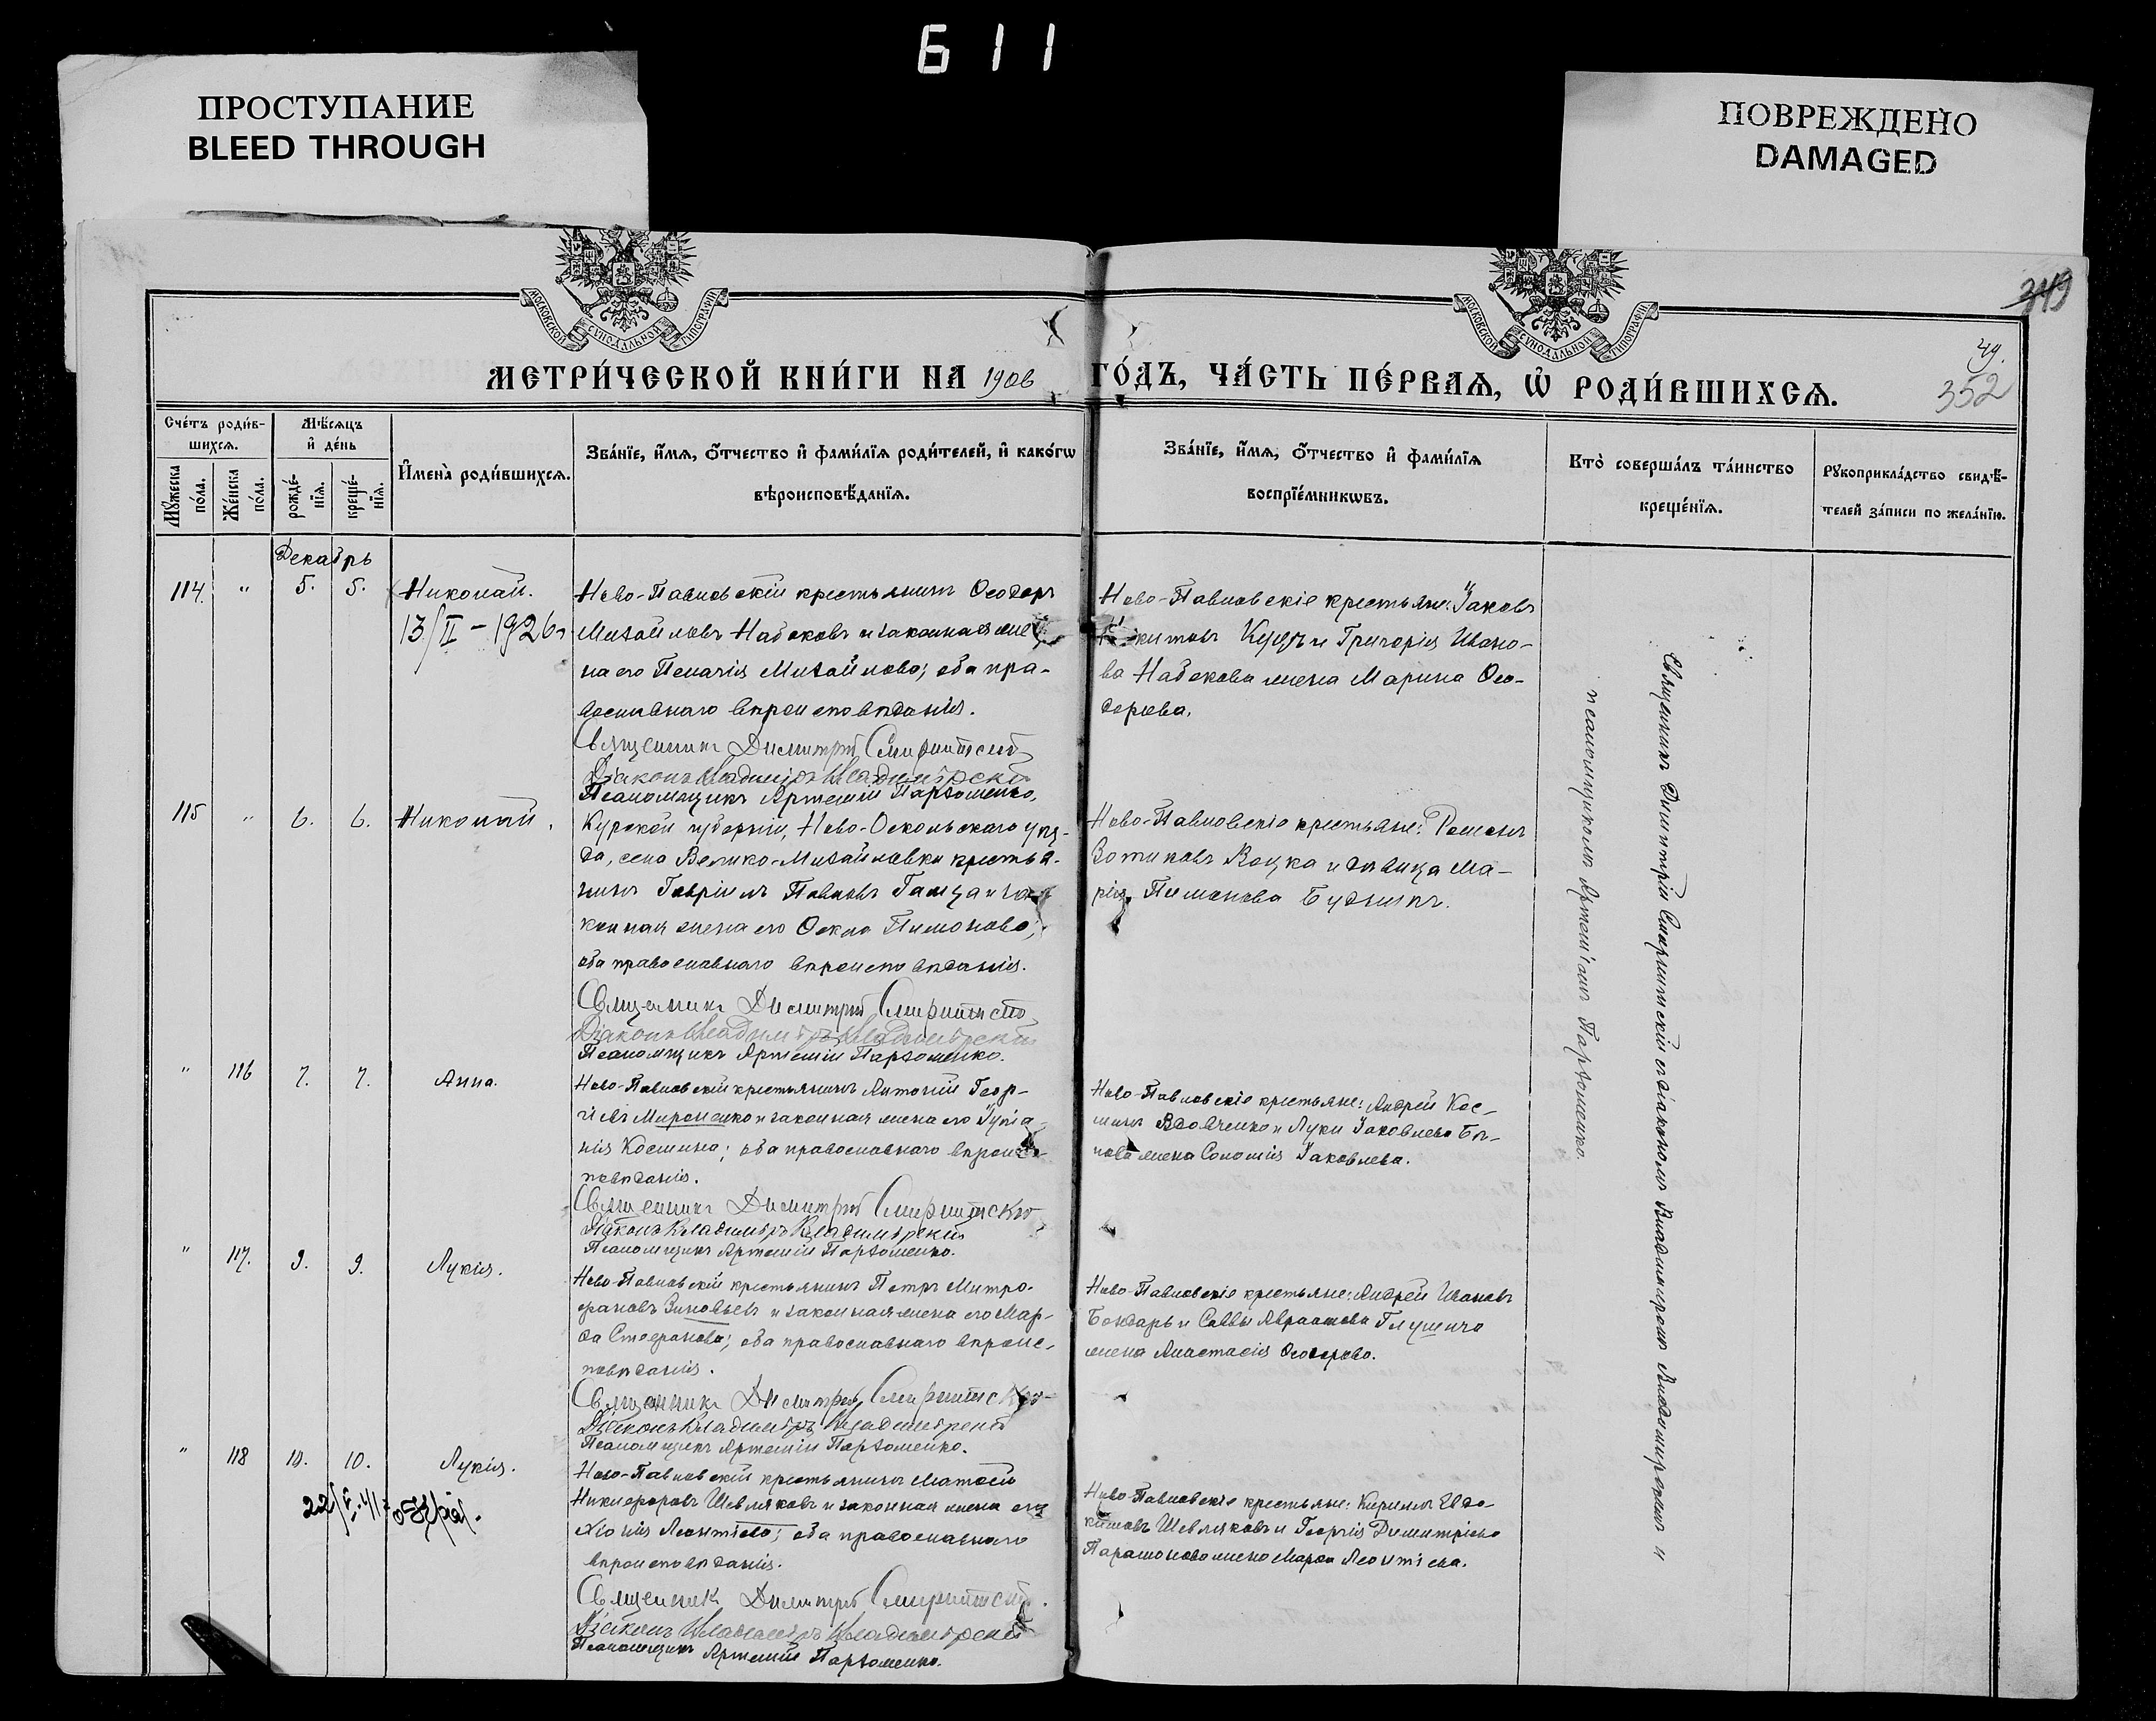 611
ПРОСТУПАНИЕ
BLEED THROUGH
ПОВРЕЖДЕНО
DAMAGED
МОСКОВСКОЙ СѴНОДАЛЬНОЙ ТИПОГРАФІИ
МОСКОВСКОЙ СѴНОДАЛЬНОЙ ТИПОГРАФІИ
349
49.
352
МЕТРИ́ЧЕСКОЙ КНИ́ГИ НА 1906 ГО́ДЪ, ЧА́СТЬ ПЕ́РВАѦ, Ѽ РОДИ́ВШИХСѦ.
Сче́тъ роди́в-
шихсѧ.
Мꙋ́жеска по́ла.
Же́нска по́ла.
Мѣ́сѧцъ
и҆ де́нь
рожде́-
нїѧ.
креще́-
нїѧ.
И҆мена̀ роди́вшихсѧ.
Зва́нїе, и҆́мѧ, ѻ҆́тчество и҆ фами́лїѧ роди́телей, и҆ како́гѡ
вѣроисповѣ́данїѧ.
Зва́нїе, и҆́мѧ, ѻ҆́тчество и҆ фами́лїѧ
воспрїе́мникѡвъ.
Кто̀ соверша́лъ та́инство
креще́нїѧ.
Рꙋкоприкла́дство свидѣ́-
телей за́писи по жела́нїю.
Декабрь
114. " 5. 5. Николай.
13/II - 1926 г
Ново-Павловскій крестьянинъ Ѳеодоръ
Михайловъ Набоковъ и законная же-
на его Пелагія Михайлова; оба пра-
вославнаго вѣроисповѣданія.
Священникъ Димитрій Смирнитскій
Діаконъ Владиміръ Владимірскій
Псаломщикъ Артемій Пархоменко.
Ново-Павловскіе крестьяне: Іаковъ
Никитовъ и Григорія Ивано-
ва Набокова жена Марина Ѳео-
дорова.
115 " 6. 6. Николай.
Курской губерніи, Ново-Оскольскаго уѣз-
да, села Велико-Михайловки крестья-
нинъ Гавріилъ Павловъ и за-
конная жена его Ѳекла Пимонова;
оба православнаго вѣроисповѣданія.
Священникъ Димитрій Смирнитскій
Діаконъ Владиміръ Владимірскій
Псаломщикъ Артемій Пархоменко.
Ново-Павловскіе крестьяне: Романъ
Зотиковъ Коцка и дѣвица Ма-
рія Пимонова
" 116 7. 7. Анна.
Ново-Павловскій крестьянинъ Антоній Геор-
гіевъ Мироненко и законная жена его Іулiа-
нія Косьмина; оба православнаго вѣроис-
повѣданія.
Священникъ Димитрій Смирнитскій
Діаконъ Владиміръ Владимірскій
Псаломщикъ Артемій Пархоменко.
Ново-Павловскіе крестьяне: Андрей Кос-
минъ Вдовченко и Луки Іаковлева Бѣ-
лова жена Соломія Іаковлева.
" 117. 9. 9. Лукія.
Ново-Павловскій крестьянинъ Петръ Митро-
фановъ Зиновьевъ и законная жена его Мар-
ѳа Стефанова; оба православнаго вѣроис-
повѣданія.
Священникъ Димитрій Смирнитскій
Діаконъ Владиміръ Владимірскій
Псаломщикъ Артемій Пархоменко.
Ново-Павловскіе крестьяне: Андрей Ивановъ
Бондарь и Саввы Авраамова
жена Анастасія Ѳеодорова.
" 118 10. 10. Лукія.
Ново-Павловскій крестьянинъ Матѳей
Никифоровъ Шевляковъ и законная жена его
Хіонія Леонтіева; оба православнаго
вѣроисповѣданія.
Священникъ Димитрій Смирнитскій
Діаконъ Владиміръ Владимірскій
Псаломщикъ Артемій Пархоменко.
Ново-Павловскіе крестьяне: Кириллъ Евдо-
кимовъ Шевляковъ и Георгія Димитріева
Парамонова жена Марѳа Леонтіева.
Священникъ Димитрій Смирнитскій съ діакономъ Владиміромъ Владимірскимъ и
псаломщикомъ Артеміемъ Пархоменко.